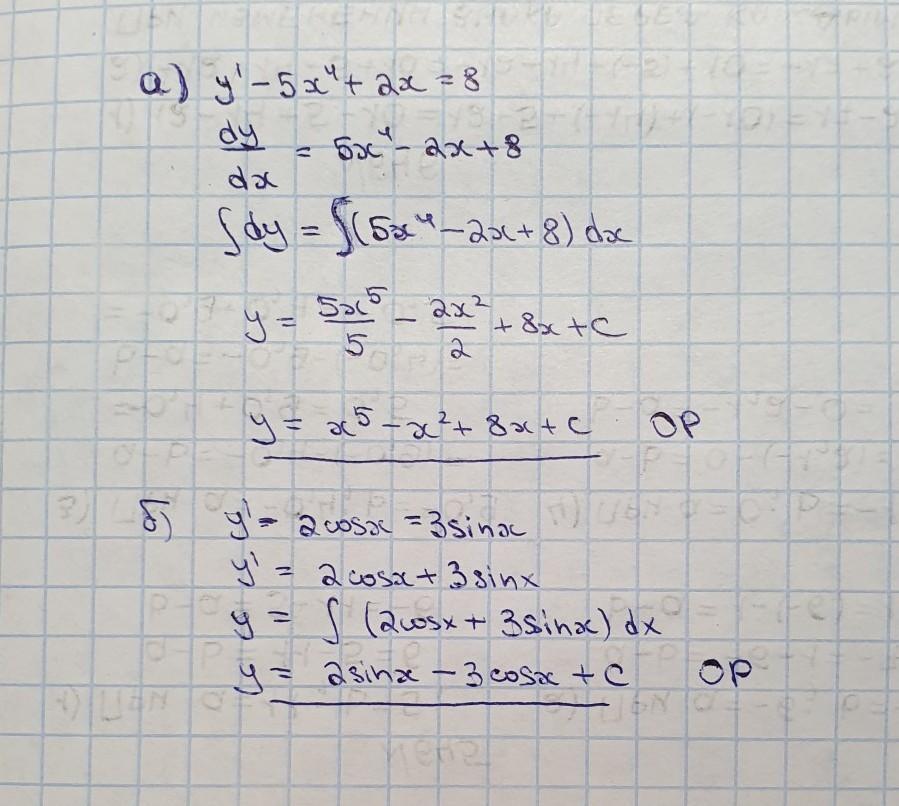 а) y' - 5x⁴ + 2x = 8
dy/dx = 5x⁴ - 2x + 8
∫dy = ∫(5x⁴ - 2x + 8) dx
y = 5x⁵/5 - 2x²/2 + 8x + C
y = x⁵ - x² + 8x + C ОР
б) y' - 2cosx = 3sinx
y' = 2cosx + 3sinx
y = ∫ (2cosx + 3sinx) dx
y = 2sinx - 3cosx + C ОР